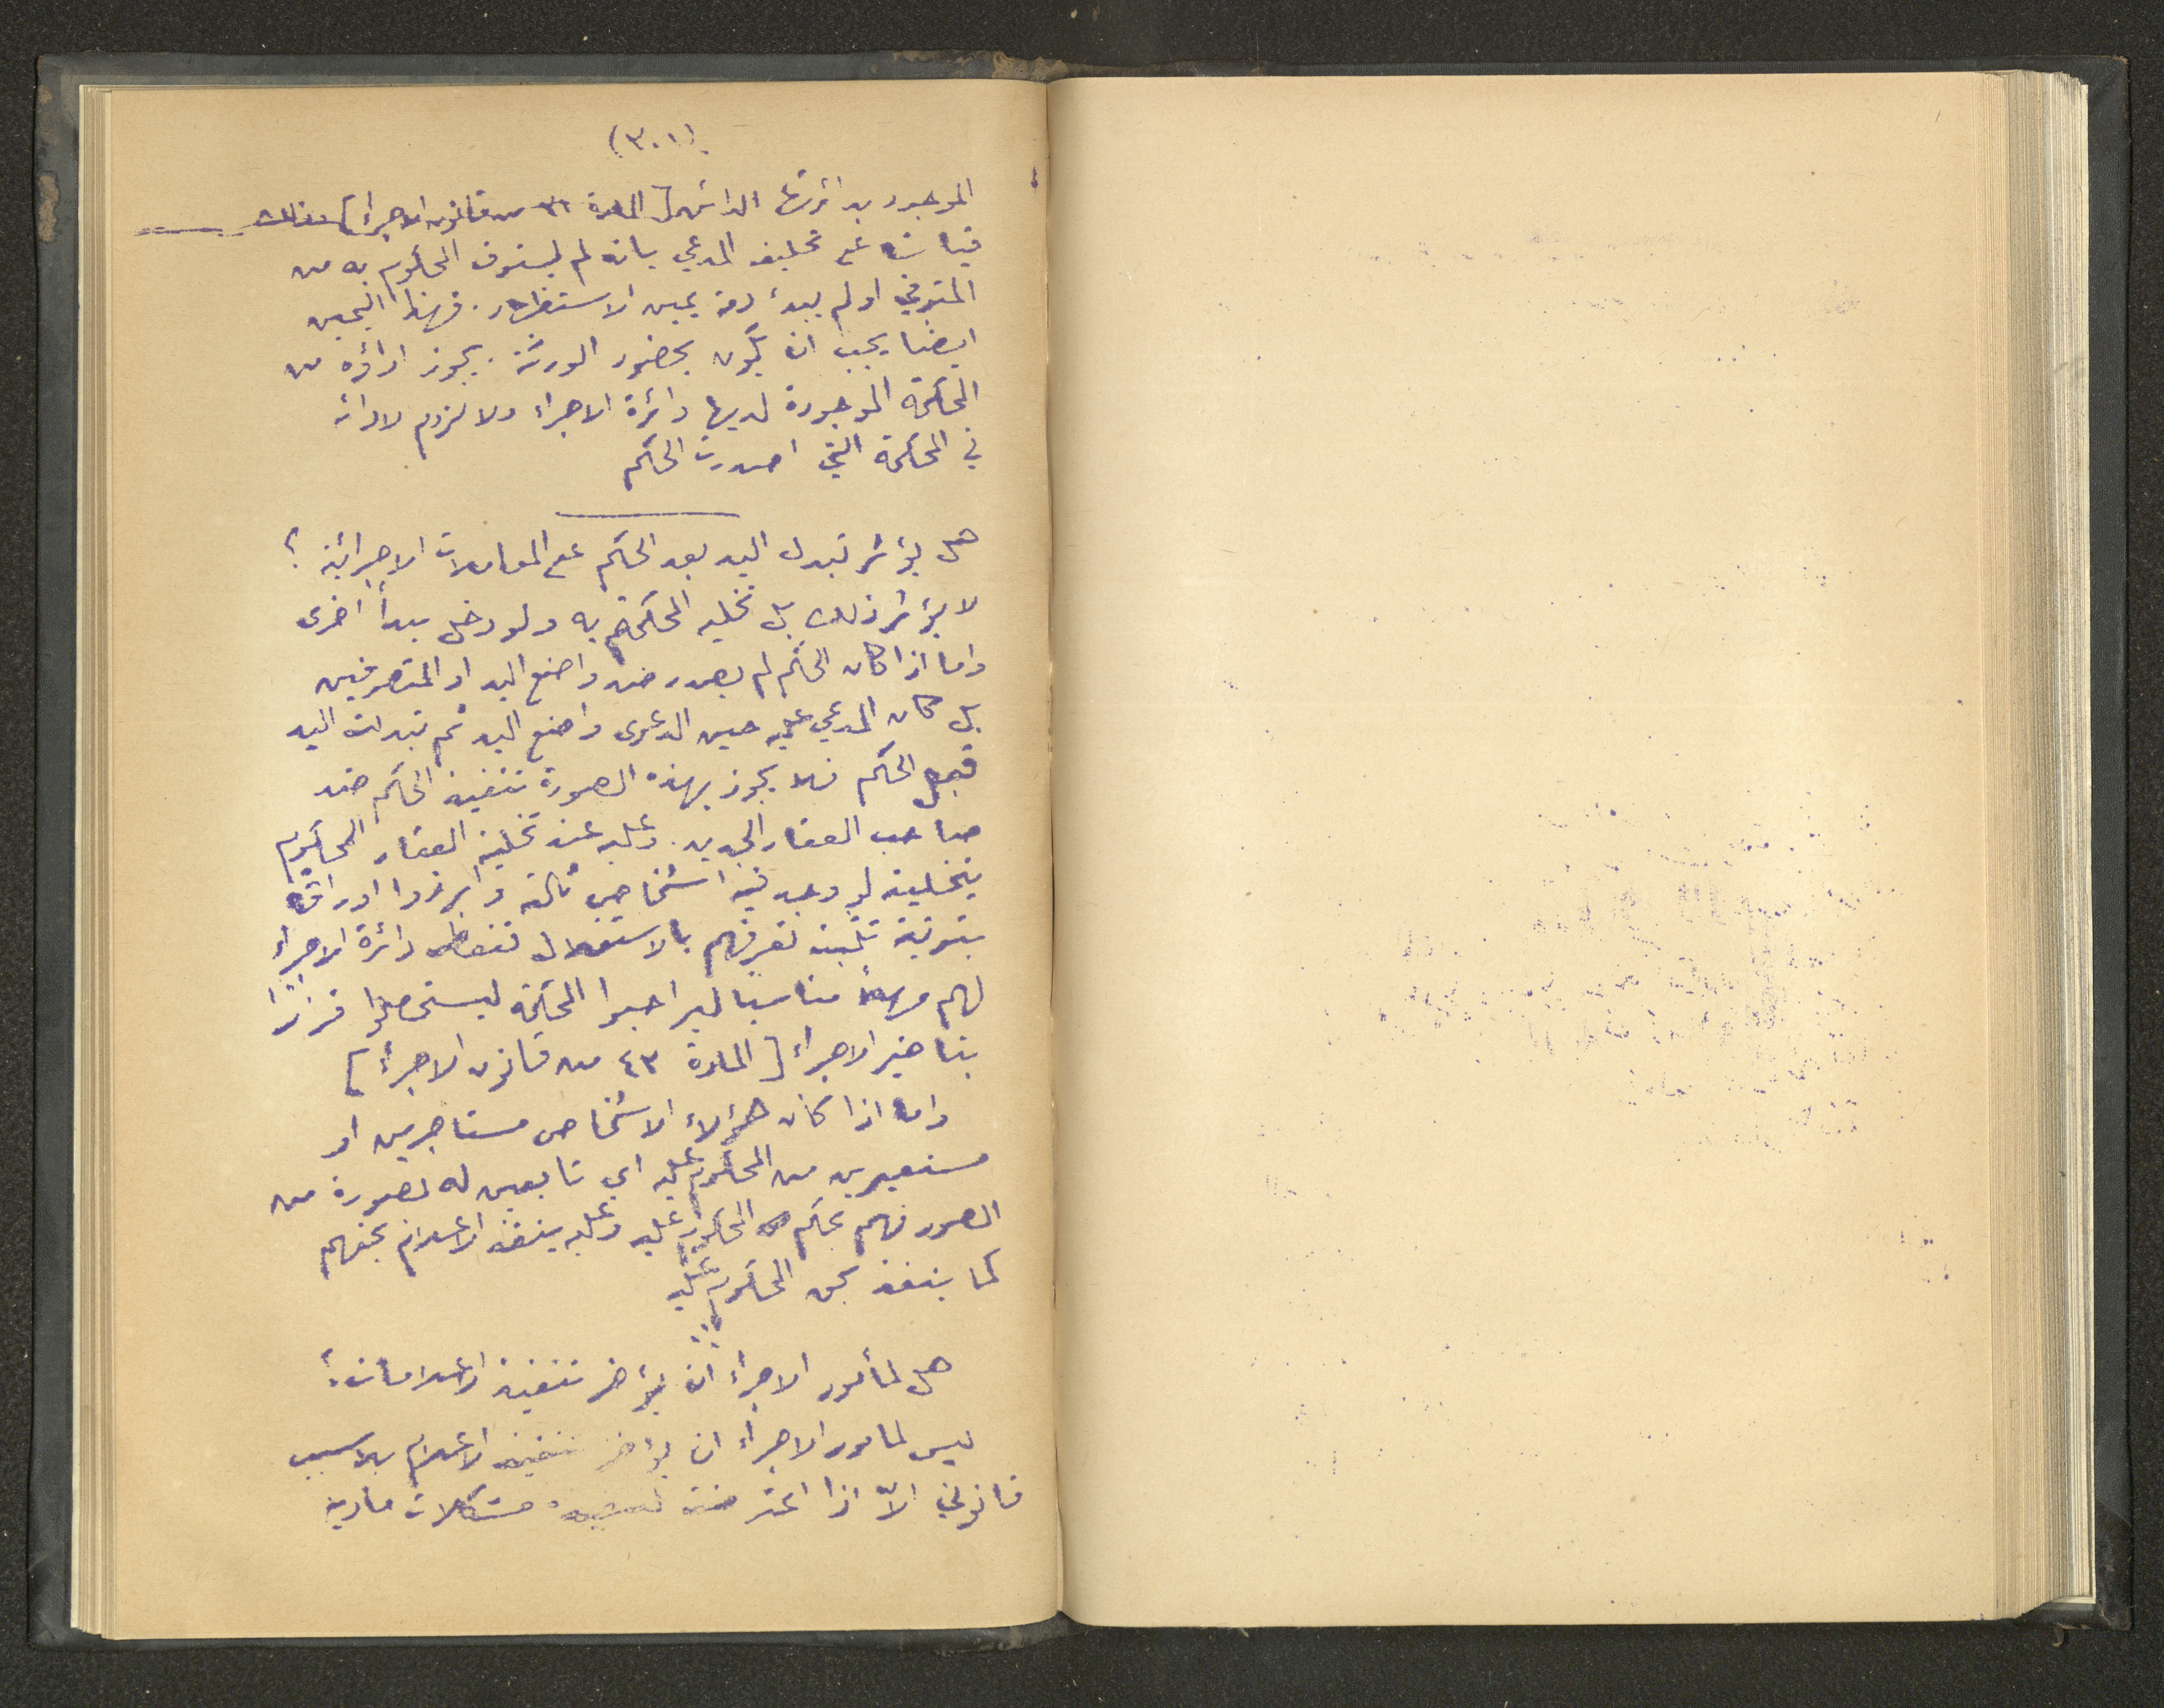 (٣٠١)
الموجود بدائرتها الدائن [المادة ٣١ من قانون الاجراء] وذلك
قياسا على تحليف المدعي بانه لم يستوف المحكوم به من
المتوفي او لم يبرء ذمته يمين الاستظهار. فهذا اليمين
ايضا يجب ان يكون بحضور الورثة. يجوز اداؤه من
المحكمة الموجودة لديها دائرة الاجراء ولا لزوم لادائه
في المحكمة التي اصدرت الحكم
هل يؤثر تبدل اليد بعد الحكم على المعاملات الاجرائية ؟
لا يؤثر ذلك بل تخليه المحكوم به ولو دخل بيد اخرى
واما اذا كان الحكم لم يصدر ضد واضع اليد او المتصرفين
بل كان المدعي عليه حين الدعوى واضع اليد ثم تبدلت اليد
قبل الحكم فلا يجوز بهذه الصورة تنفيذ الحكم ضد
صاحب العقار الجديد. وعليه عند تخلية العقار المحكوم
بتخليته لو وجد فيه اشخاص ثالثة وابرزوا اوراقا
تثبت تصرفهم بالاستقلال فتعطي دائرة الاجراء
لهم مهلا مناسبا ليراجعوا المحكمة ليستحصلوا قرارا
بتاخير الاجراء [المادة ٤٣ من قانون الاجراء]
واما اذا كان هؤلاء الاشخاص مستاجرين او
مستعيرين من المحكوم عليه اي تابعين له بصورة من
الصور فهم بحكم المحكوم عليه وعليه ينفذ الاعلام بحقهم
كما ينفذ بحق المحكوم عليه
هل لمأمور الاجراء ان يؤخر تنفيذ الاعلامات؟
ليس لمامور الاجراء ان يؤخر تنفيذ الاعلام بلا سبب
قانوني الاّ اذا اعترضت تنفيذه مشكلات مادية